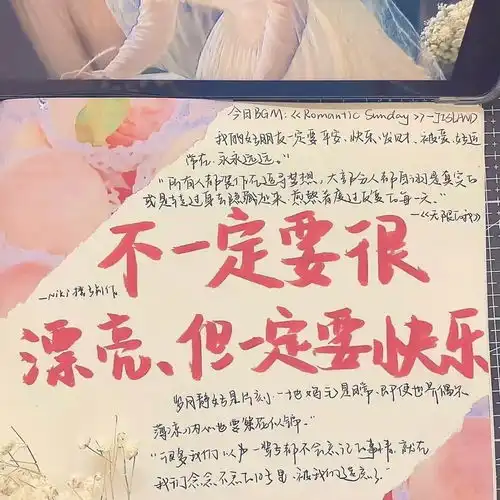 今日BGM:《Romantic Sunday》-JISLAND
我的好朋友一定要平安、快乐、发财、被爱、好运
常在、永永远远。"
"所有人都装作在追寻梦想,大部分人都自诩是真实
或是转过身去隐藏起来,煎熬着度过反复的每一天。"
—《无限的我》
不一定要很
—Niki
漂亮、但一定要快乐
岁月静好是片刻,一地鸡毛是日常、即使世界偶尔
薄凉,内心也要繁花似锦。"
"很多我们以为一辈子都不会忘记的事情,就在
我们念念不忘的日子里,被我们遗忘了。"